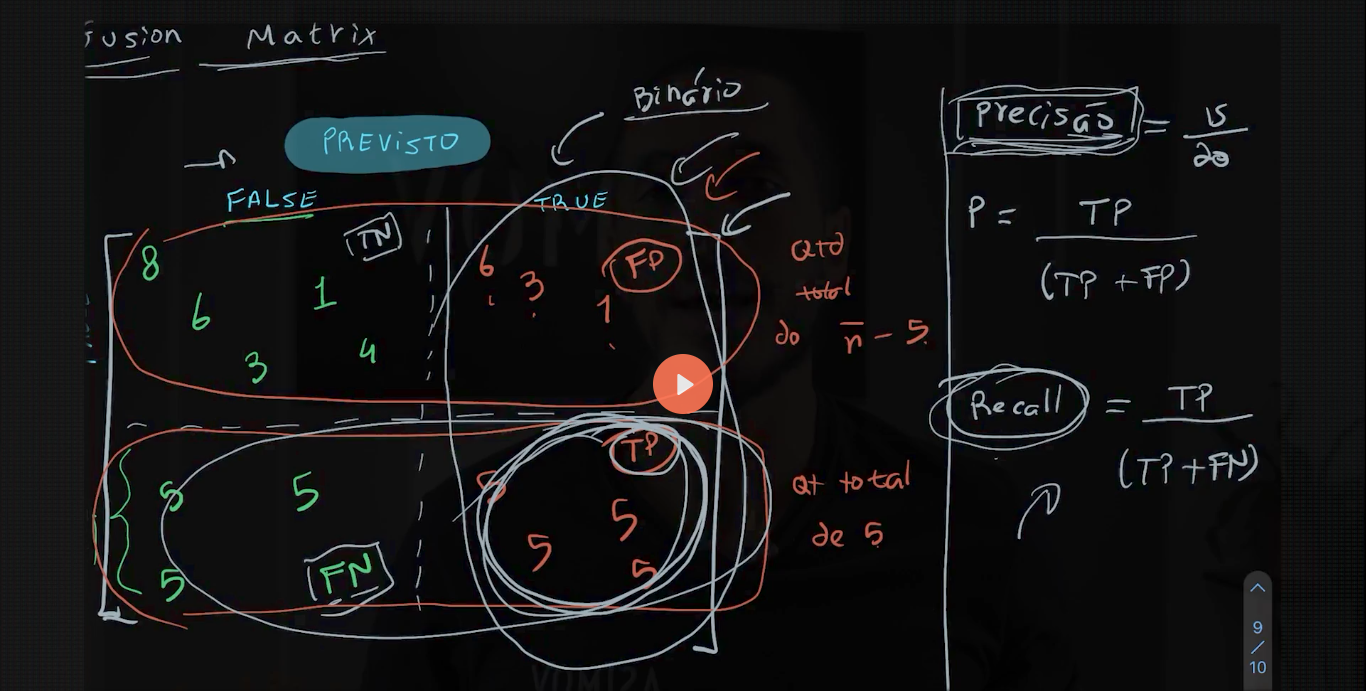 fusion Matrix
Binário
PREVISTO
FALSE TRUE
TN
8 6 1 3 4
6 3 1 FP
Qtd
total
do n̅ - 5
5 5 5 FN
5 5 5 5 TP
Qt total
de 5
Precisão = 15/20
P = TP
(TP + FP)
Recall = TP
(TP + FN)
9
/
10